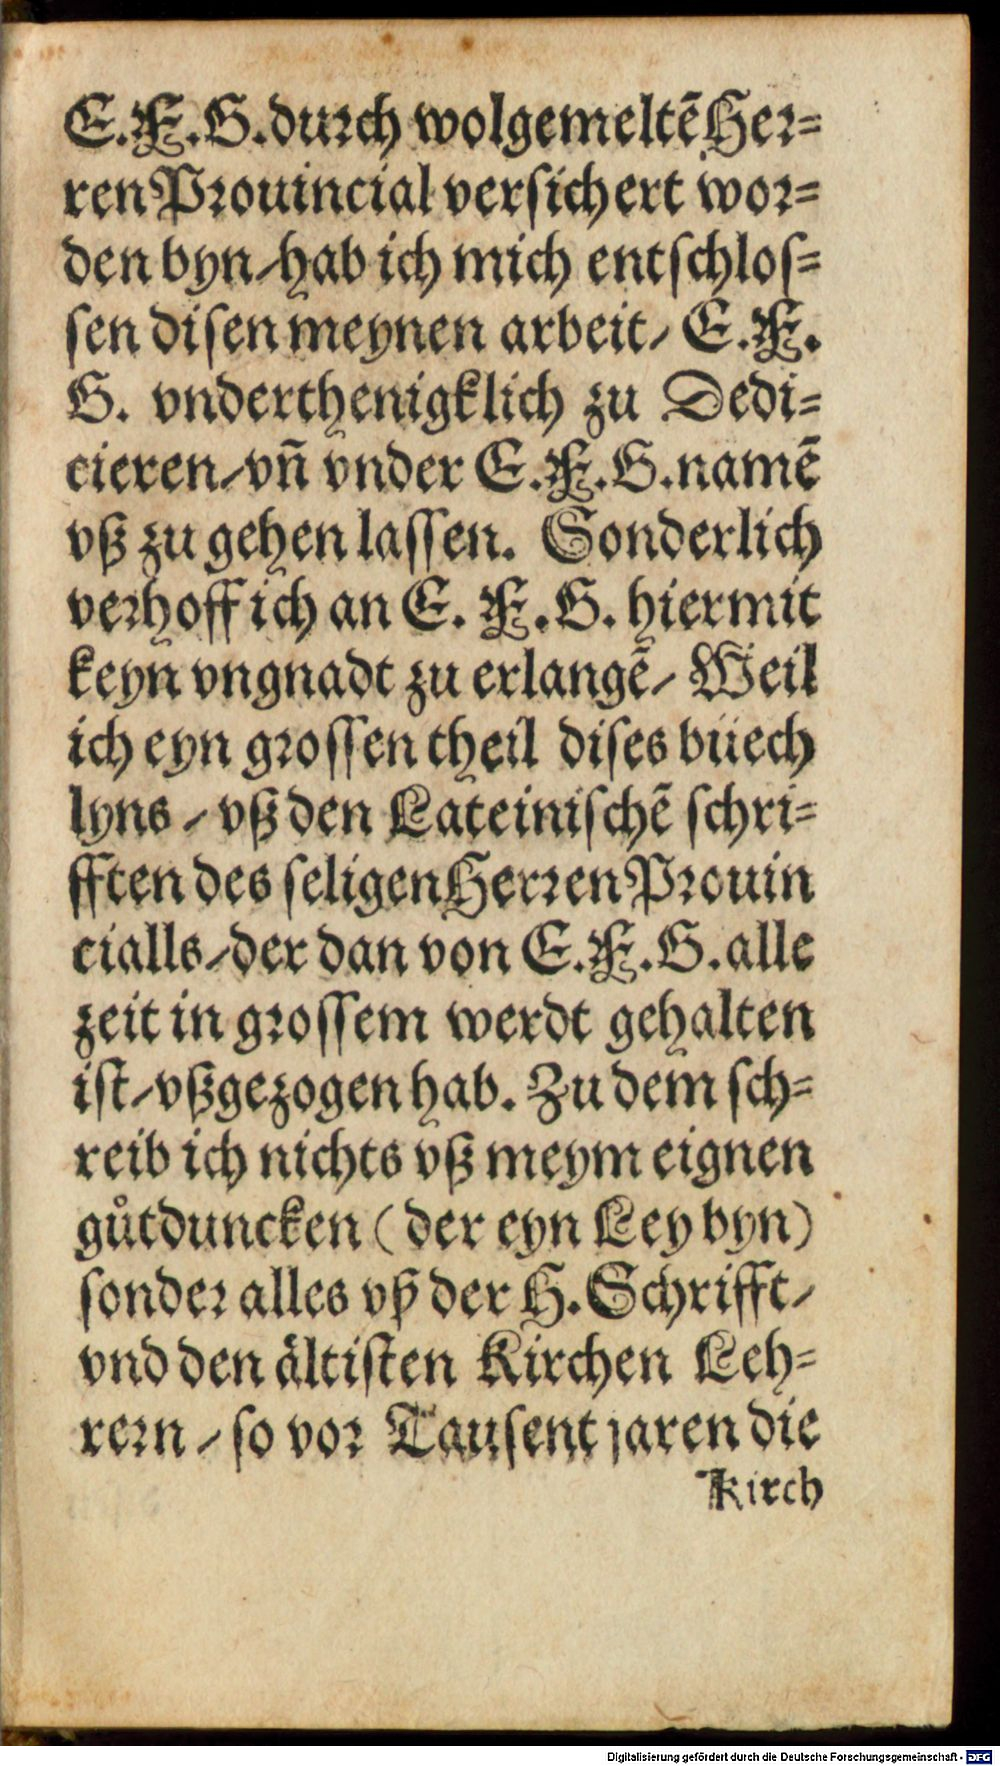 E.F.G. durch wolgemeltẽ Her=
ren Prouincial versichert wor=
den byn / hab ich mich entschlos=
sen disen meynen arbeit / E.F.
G. vnderthenigklich zu Dedi=
cieren / vñ vnder E.F.G. namẽ
vß zu gehen lassen. Sonderlich
verhoff ich an E. F. G. hiermit
keyn vngnadt zu erlangẽ / Weil
ich eyn grossen theil dises büech
lyns / vß den Lateinischẽ schri=
fften des seligen Herren Prouin
cialls / der dan von E.F.G. alle
zeit in grossem werdt gehalten
ist / vßgezogen hab. Zu dem sch=
reib ich nichts vß meym eignen
gůtduncken (der eyn Ley byn)
sonder alles vß der H. Schrifft /
vnd den ältisten Kirchen Leh=
rern / so vor Tausent jaren die
Kirch
Digitalisierung gefördert durch die Deutsche Forschungsgemeinschaft - DFG